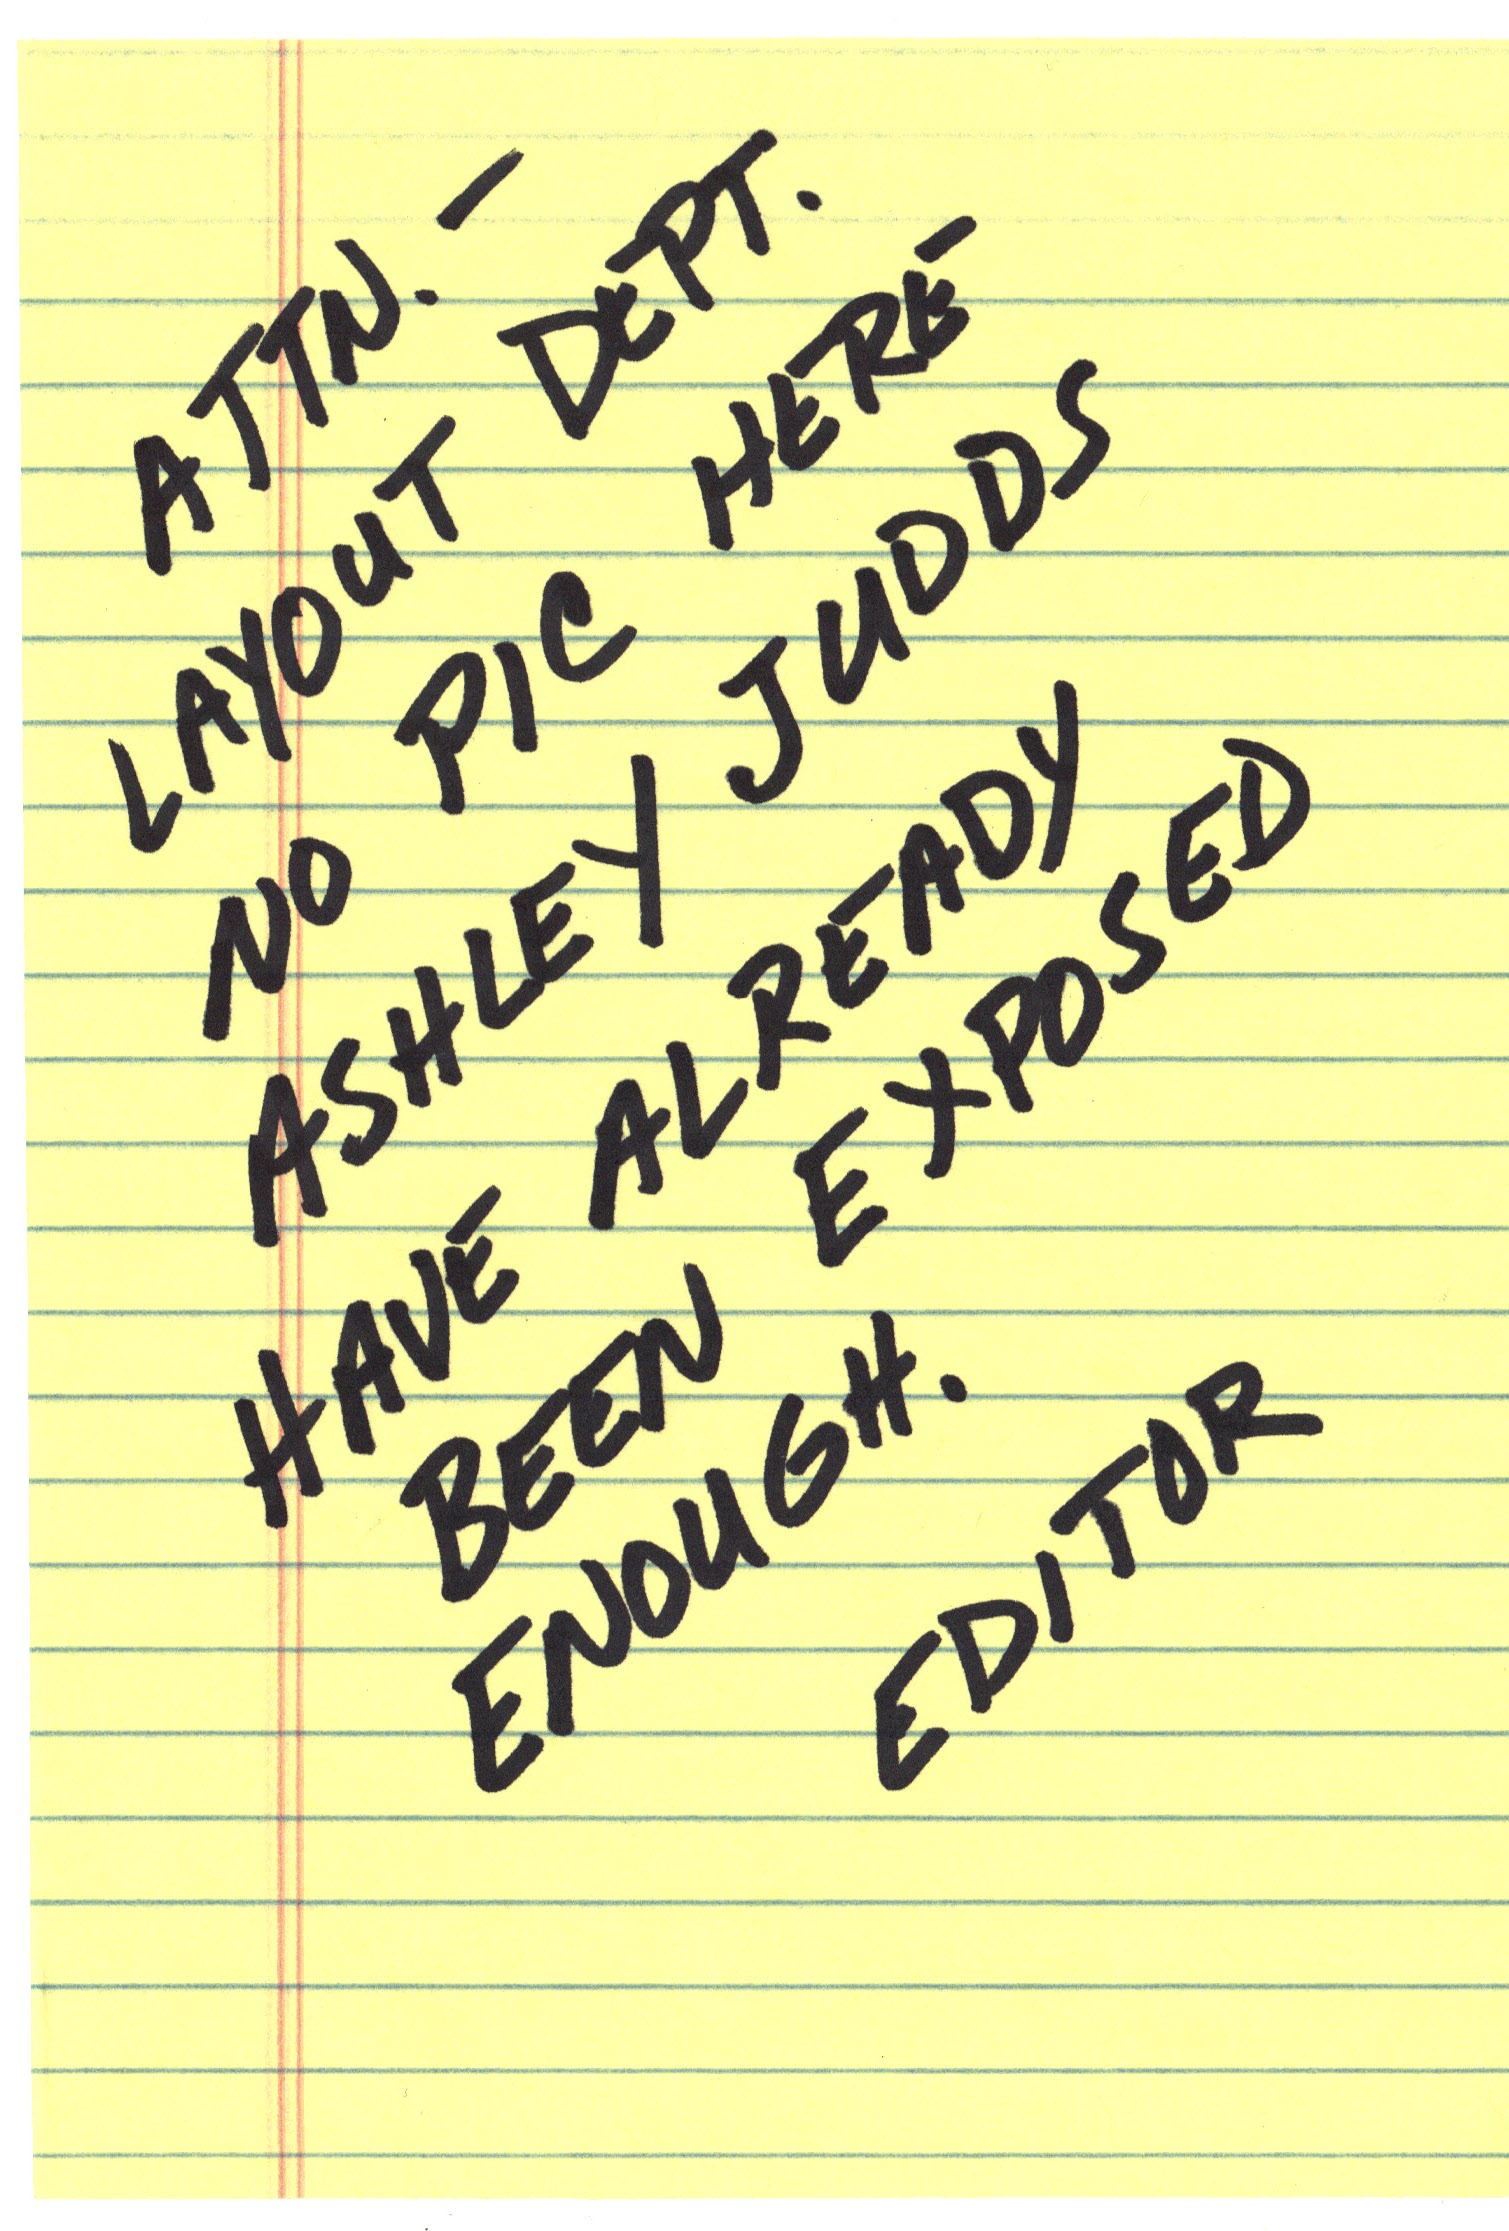 ATTN. -
LAYOUT DEPT.
NO PIC HERE-
ASHLEY JUDDS
HAVE ALREADY
BEEN EXPOSED
ENOUGH.
EDITOR